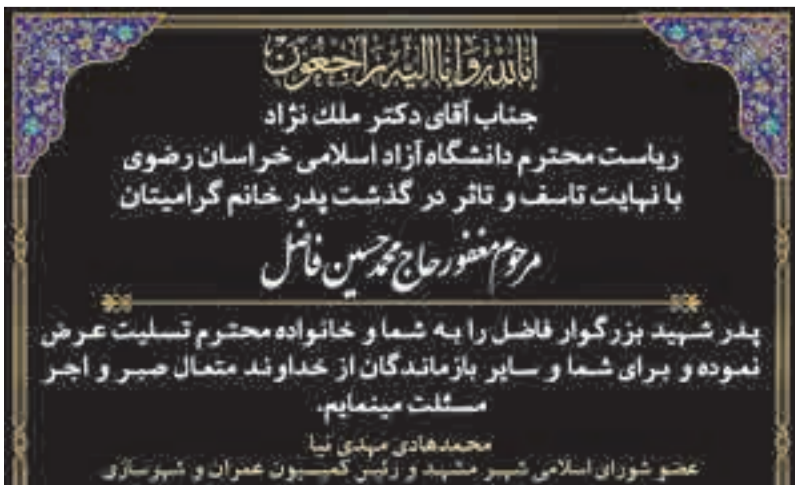 انا لله و انا الیه راجعون
جناب آقای دکتر ملک نژاد
ریاست محترم دانشگاه آزاد اسلامی خراسان رضوی
با نهایت تاسف و تاثر در گذشت پدر خانم گرامیتان
مرحوم مغفور حاج محمد حسین فاضل
پدر شهید بزرگوار فاضل را به شما و خانواده محترم تسلیت عرض
نموده و برای شما و سایر بازماندگان از خداوند متعال صبر و اجر
مسئلت مینمایم.
محمدهادی مهدی نیا
عضو شورای اسلامی شهر مشهد و رئیس کمیسیون عمران و شهرسازی